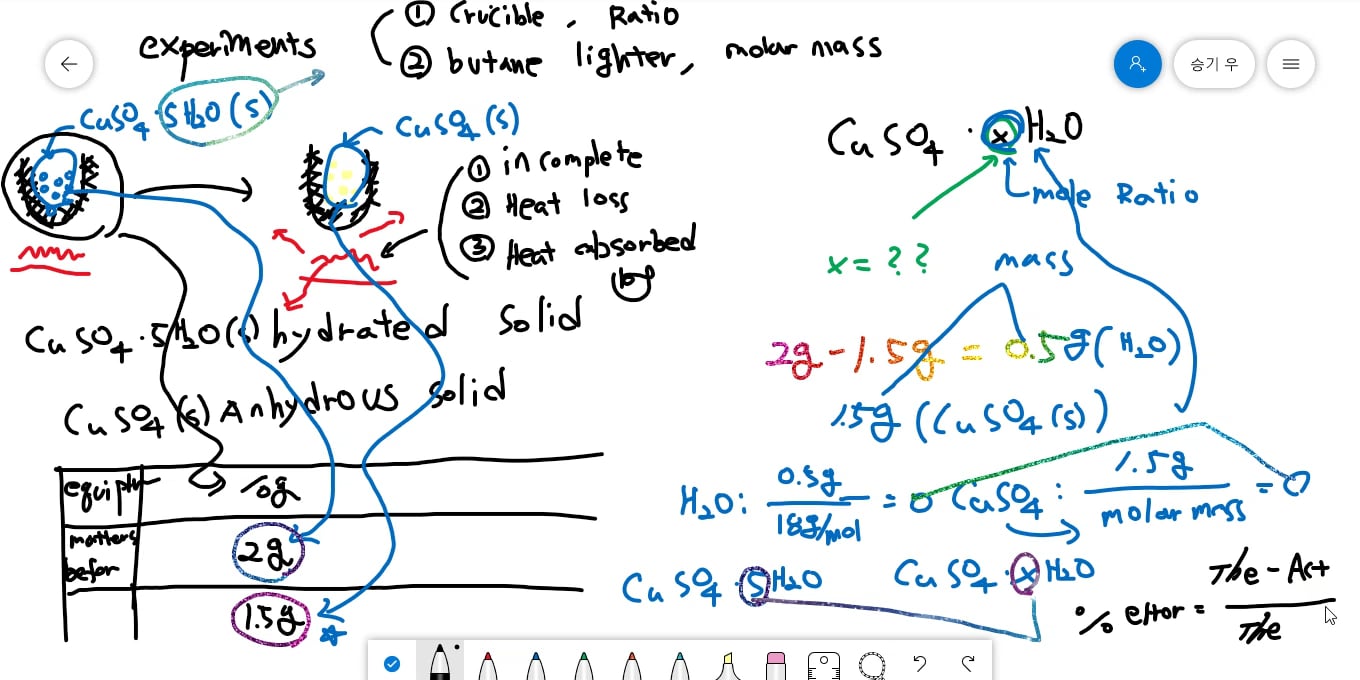 experiments
① Crucible, Ratio
② butane lighter, molar mass
승기 우
CuSO4·5H2O(s)
CuSO4(s)
① incomplete
② Heat loss
③ Heat absorbed
by
CuSO4·5H2O(s) hydrated solid
CuSO4(s) Anhydrous solid
10g
matters
befor
2g
1.5g
CuSO4·xH2O
mole Ratio
x=??
mass
2g-1.5g=0.5g(H2O)
1.5g(CuSO4(s))
H2O: 0.5g
18g/mol
= 0
CuSO4: 1.5g
molar mass
= 0
CuSO4·5H2O
CuSO4·xH2O
% error = The-Act
The